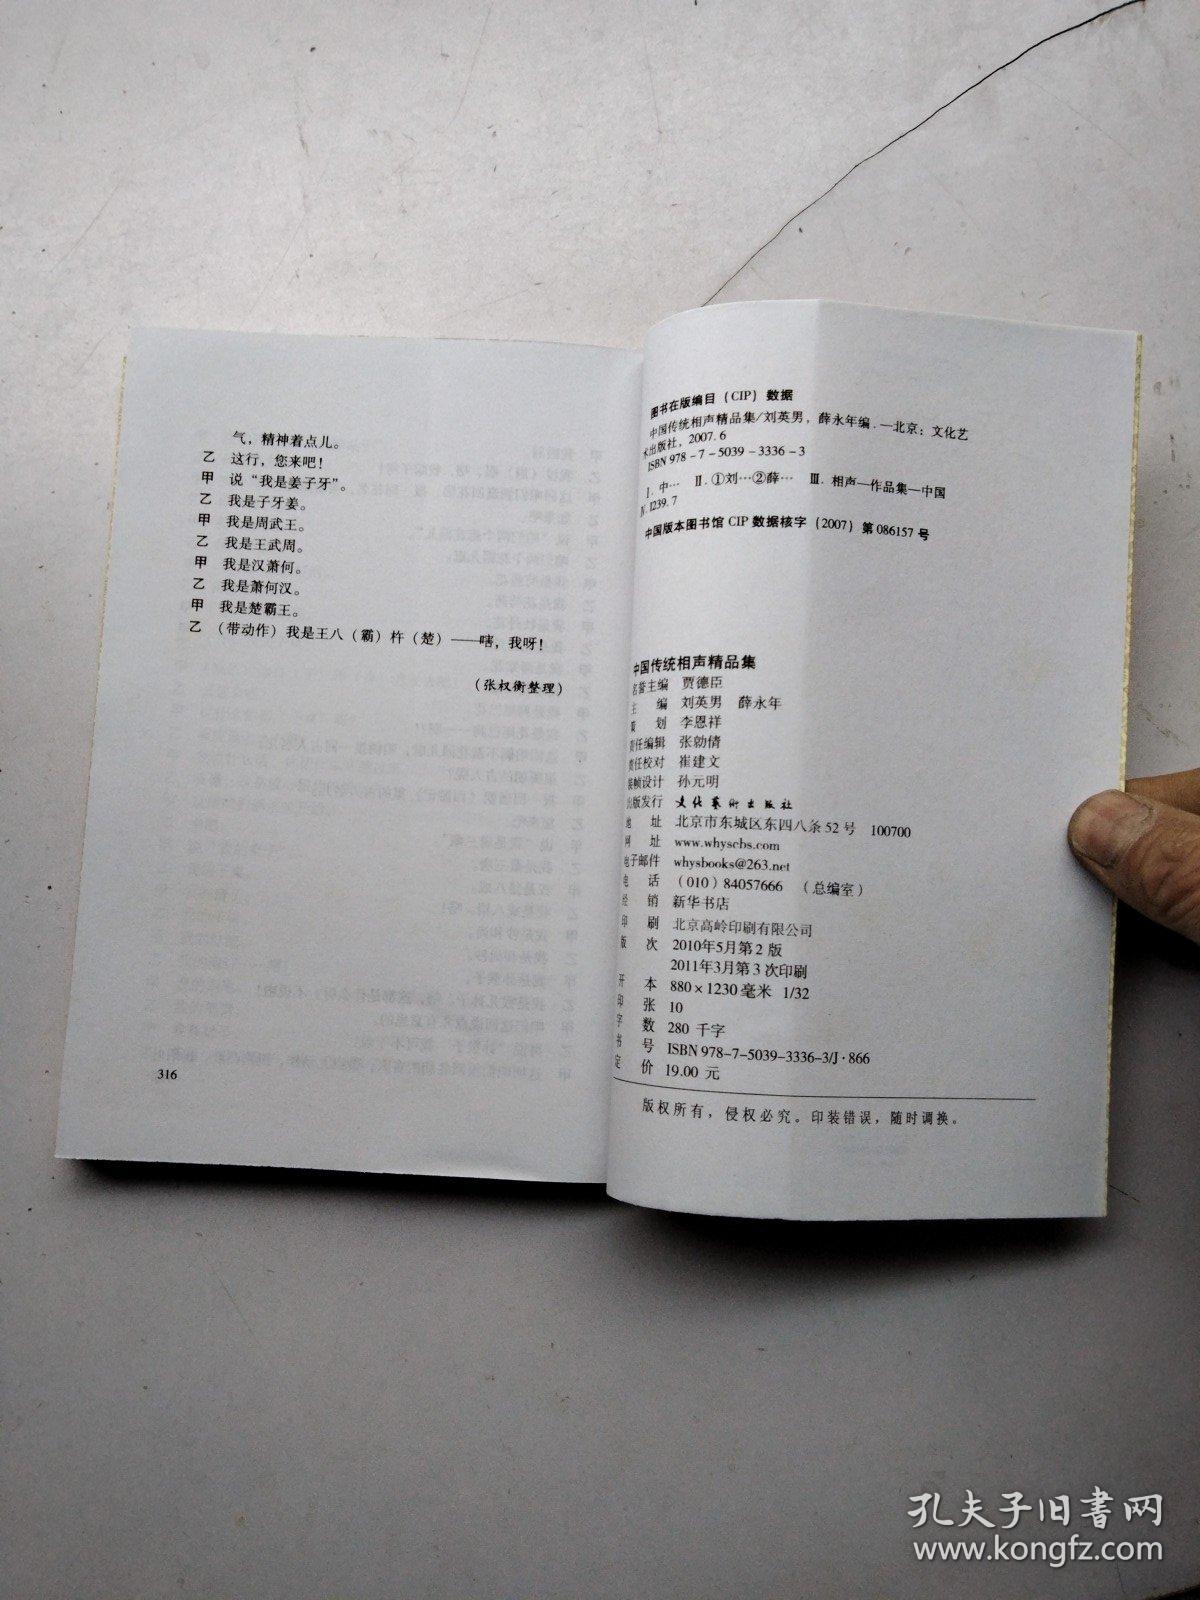 气，精神着点儿。
乙 这行，您来吧！
甲 说“我是姜子牙”。
乙 我是子牙姜。
甲 我是周武王。
乙 我是王武周。
甲 我是汉萧何。
乙 我是萧何汉。
甲 我是楚霸王。
乙 (带动作) 我是王八（霸）杵（楚）——嘻，我呀！
(张权衡整理)
316
图书在版编目（CIP）数据
中国传统相声精品集/刘英男，薛永年编.—北京：文化艺
术出版社，2007.6
ISBN 978-7-5039-3336-3
Ⅰ.中… Ⅱ.①刘…②薛… Ⅲ.相声—作品集—中国
Ⅳ.I239.7
中国版本图书馆 CIP 数据核字（2007）第 086157 号
中国传统相声精品集
名誉主编 贾德臣
主 编 刘英男 薛永年
策 划 李恩祥
责任编辑 张勍倩
责任校对 崔建文
装帧设计 孙元明
出版发行 文化藝術出版社
地 址 北京市东城区东四八条52号 100700
网 址 www.whyscbs.com
电子邮件 whysbooks@263.net
电 话 （010）84057666 （总编室）
经 销 新华书店
印 刷 北京高岭印刷有限公司
版 次 2010年5月第2版
2011年3月第3次印刷
开 本 880×1230毫米 1/32
印 张 10
字 数 280千字
书 号 ISBN 978-7-5039-3336-3/J·866
定 价 19.00 元
版权所有，侵权必究。印装错误，随时调换。
孔夫子旧书网
www.kongfz.com